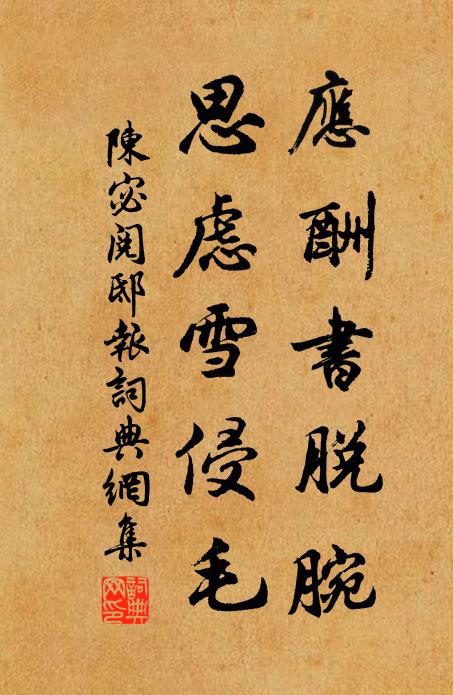 應酬書脱腕
思慮雪侵毛
陳宓閱邸報詞典網集
詞典網印